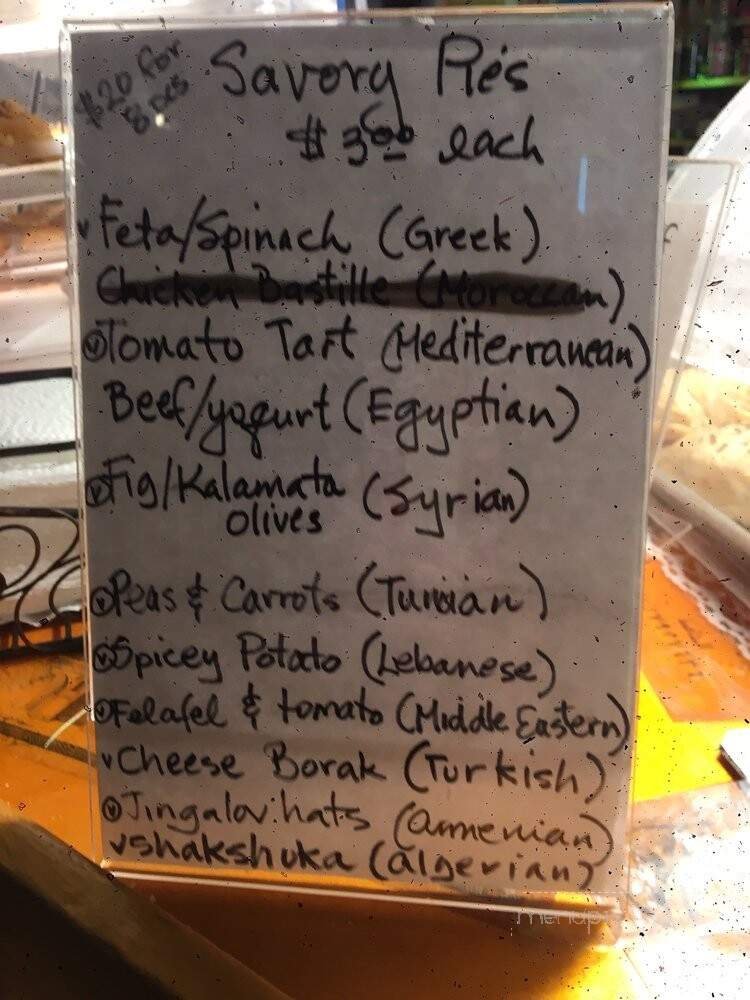 $20 for
8 pcs
Savory Pies
$ 3.00 each
v Feta/Spinach (Greek)
Chicken Bastille (Moroccan)
ⓥ Tomato Tart (Mediterranean)
Beef/yogurt (Egyptian)
ⓥ Fig/Kalamata (Syrian)
olives
ⓥ Peas & Carrots (Tunisian)
ⓥ Spicey Potato (Lebanese)
ⓥ Felafel & tomato (Middle Eastern)
v Cheese Borak (Turkish)
ⓥ Jingalov hats (armenian)
v shakshuka (algerian)